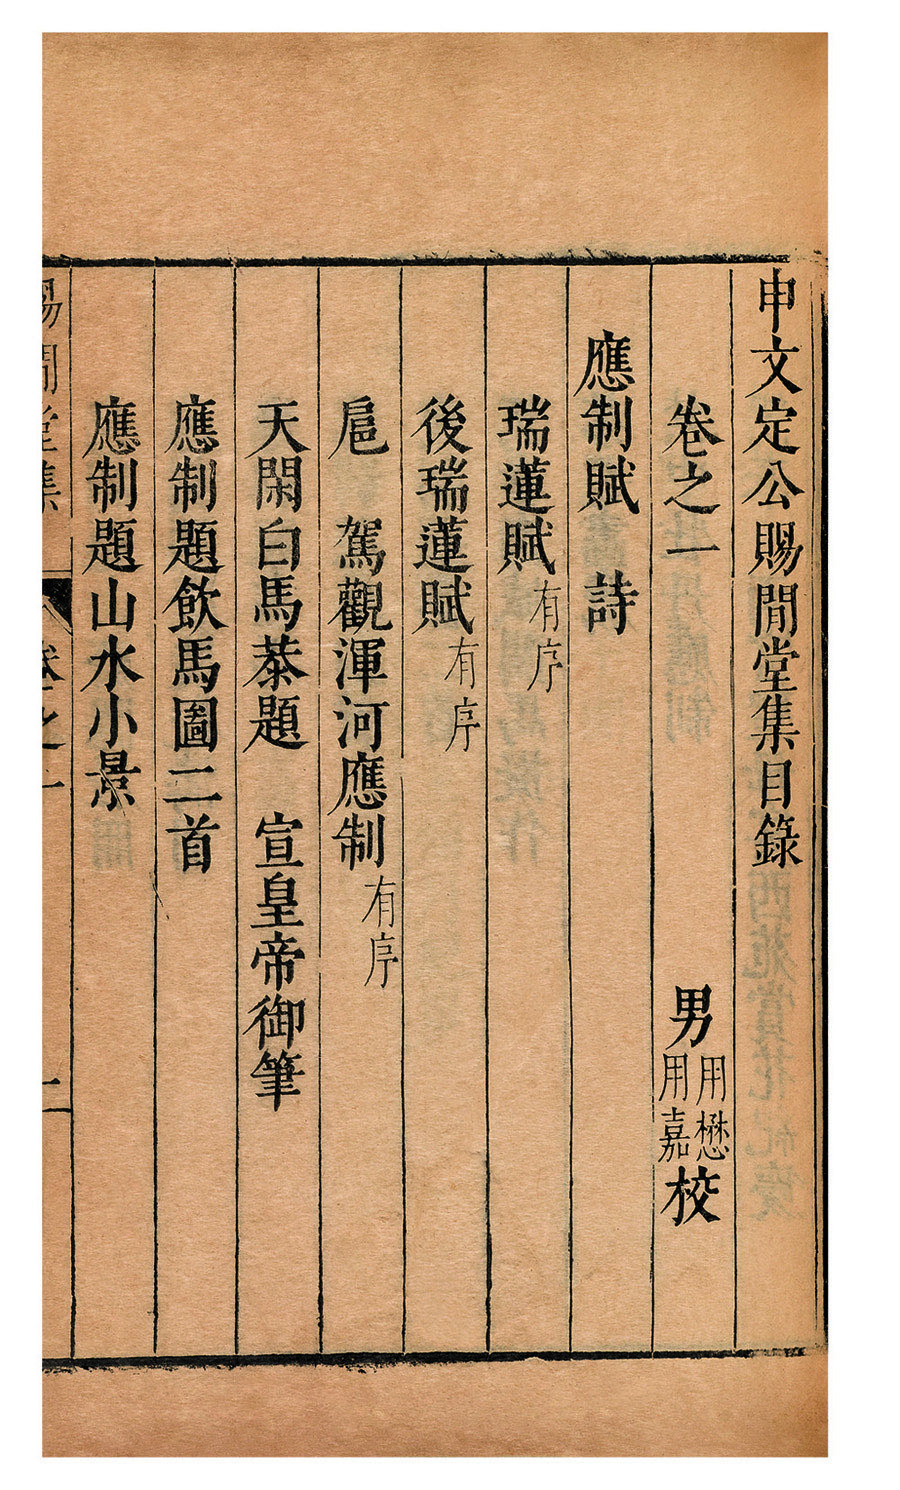 申文定公賜閒堂集目錄
卷之一 男用懋用嘉校
應制賦 詩
瑞蓮賦有序
後瑞蓮賦有序
扈 駕觀渾河應制有序
天閑白馬恭題 宣皇帝御筆
應制題飲馬圖二首
應制題山水小景
賜閒堂集 卷之一 一